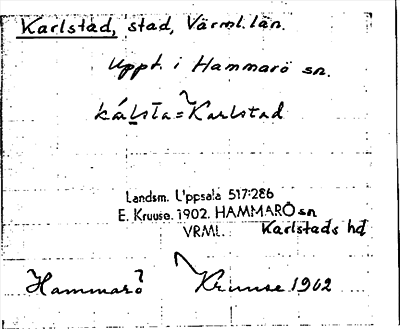 Karlstad, stad, Värml. län.
Uppt. i Hammarö sn.
kálsta = Karlstad
Landsm. Uppsala 517:286
E. Kruuse. 1902. HAMMARÖ sn
VRML. Karlstads hd
Hammarö Kruuse 1902